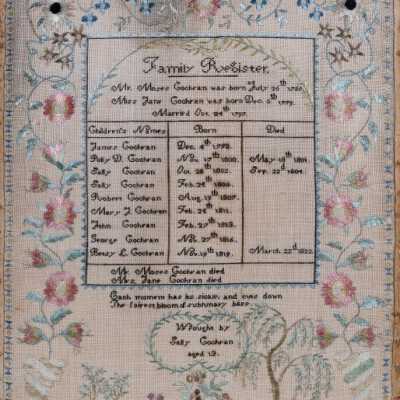 Family Register.
Mr. Moses Cochran was born July
Miss Jane Cochran was born Dec.
Married Oct.
Children's Names Born Died
James Cochran Dec. 4th 1798.
Polly D. Cochran Nov. 17th 1800. May 1801.
Sally Cochran Oct. 28th 1802. Sep. 22th 1804.
Sally Cochran Feb. 1805.
Robert Cochran Aug. 1807.
Mary J. Cochran Feb. 1811.
John Cochran Feb. 1813.
George Cochran Nov. 27th 1816.
Betsy L. Cochran Nov. 1819. March. 22d 1822.
Mr. Moses Cochran died
Mrs. Jane Cochran died
Each moment has its sickle and cuts down
The fairest bloom of sublunary bliss
Wrought by
Sally Cochran
aged 19.